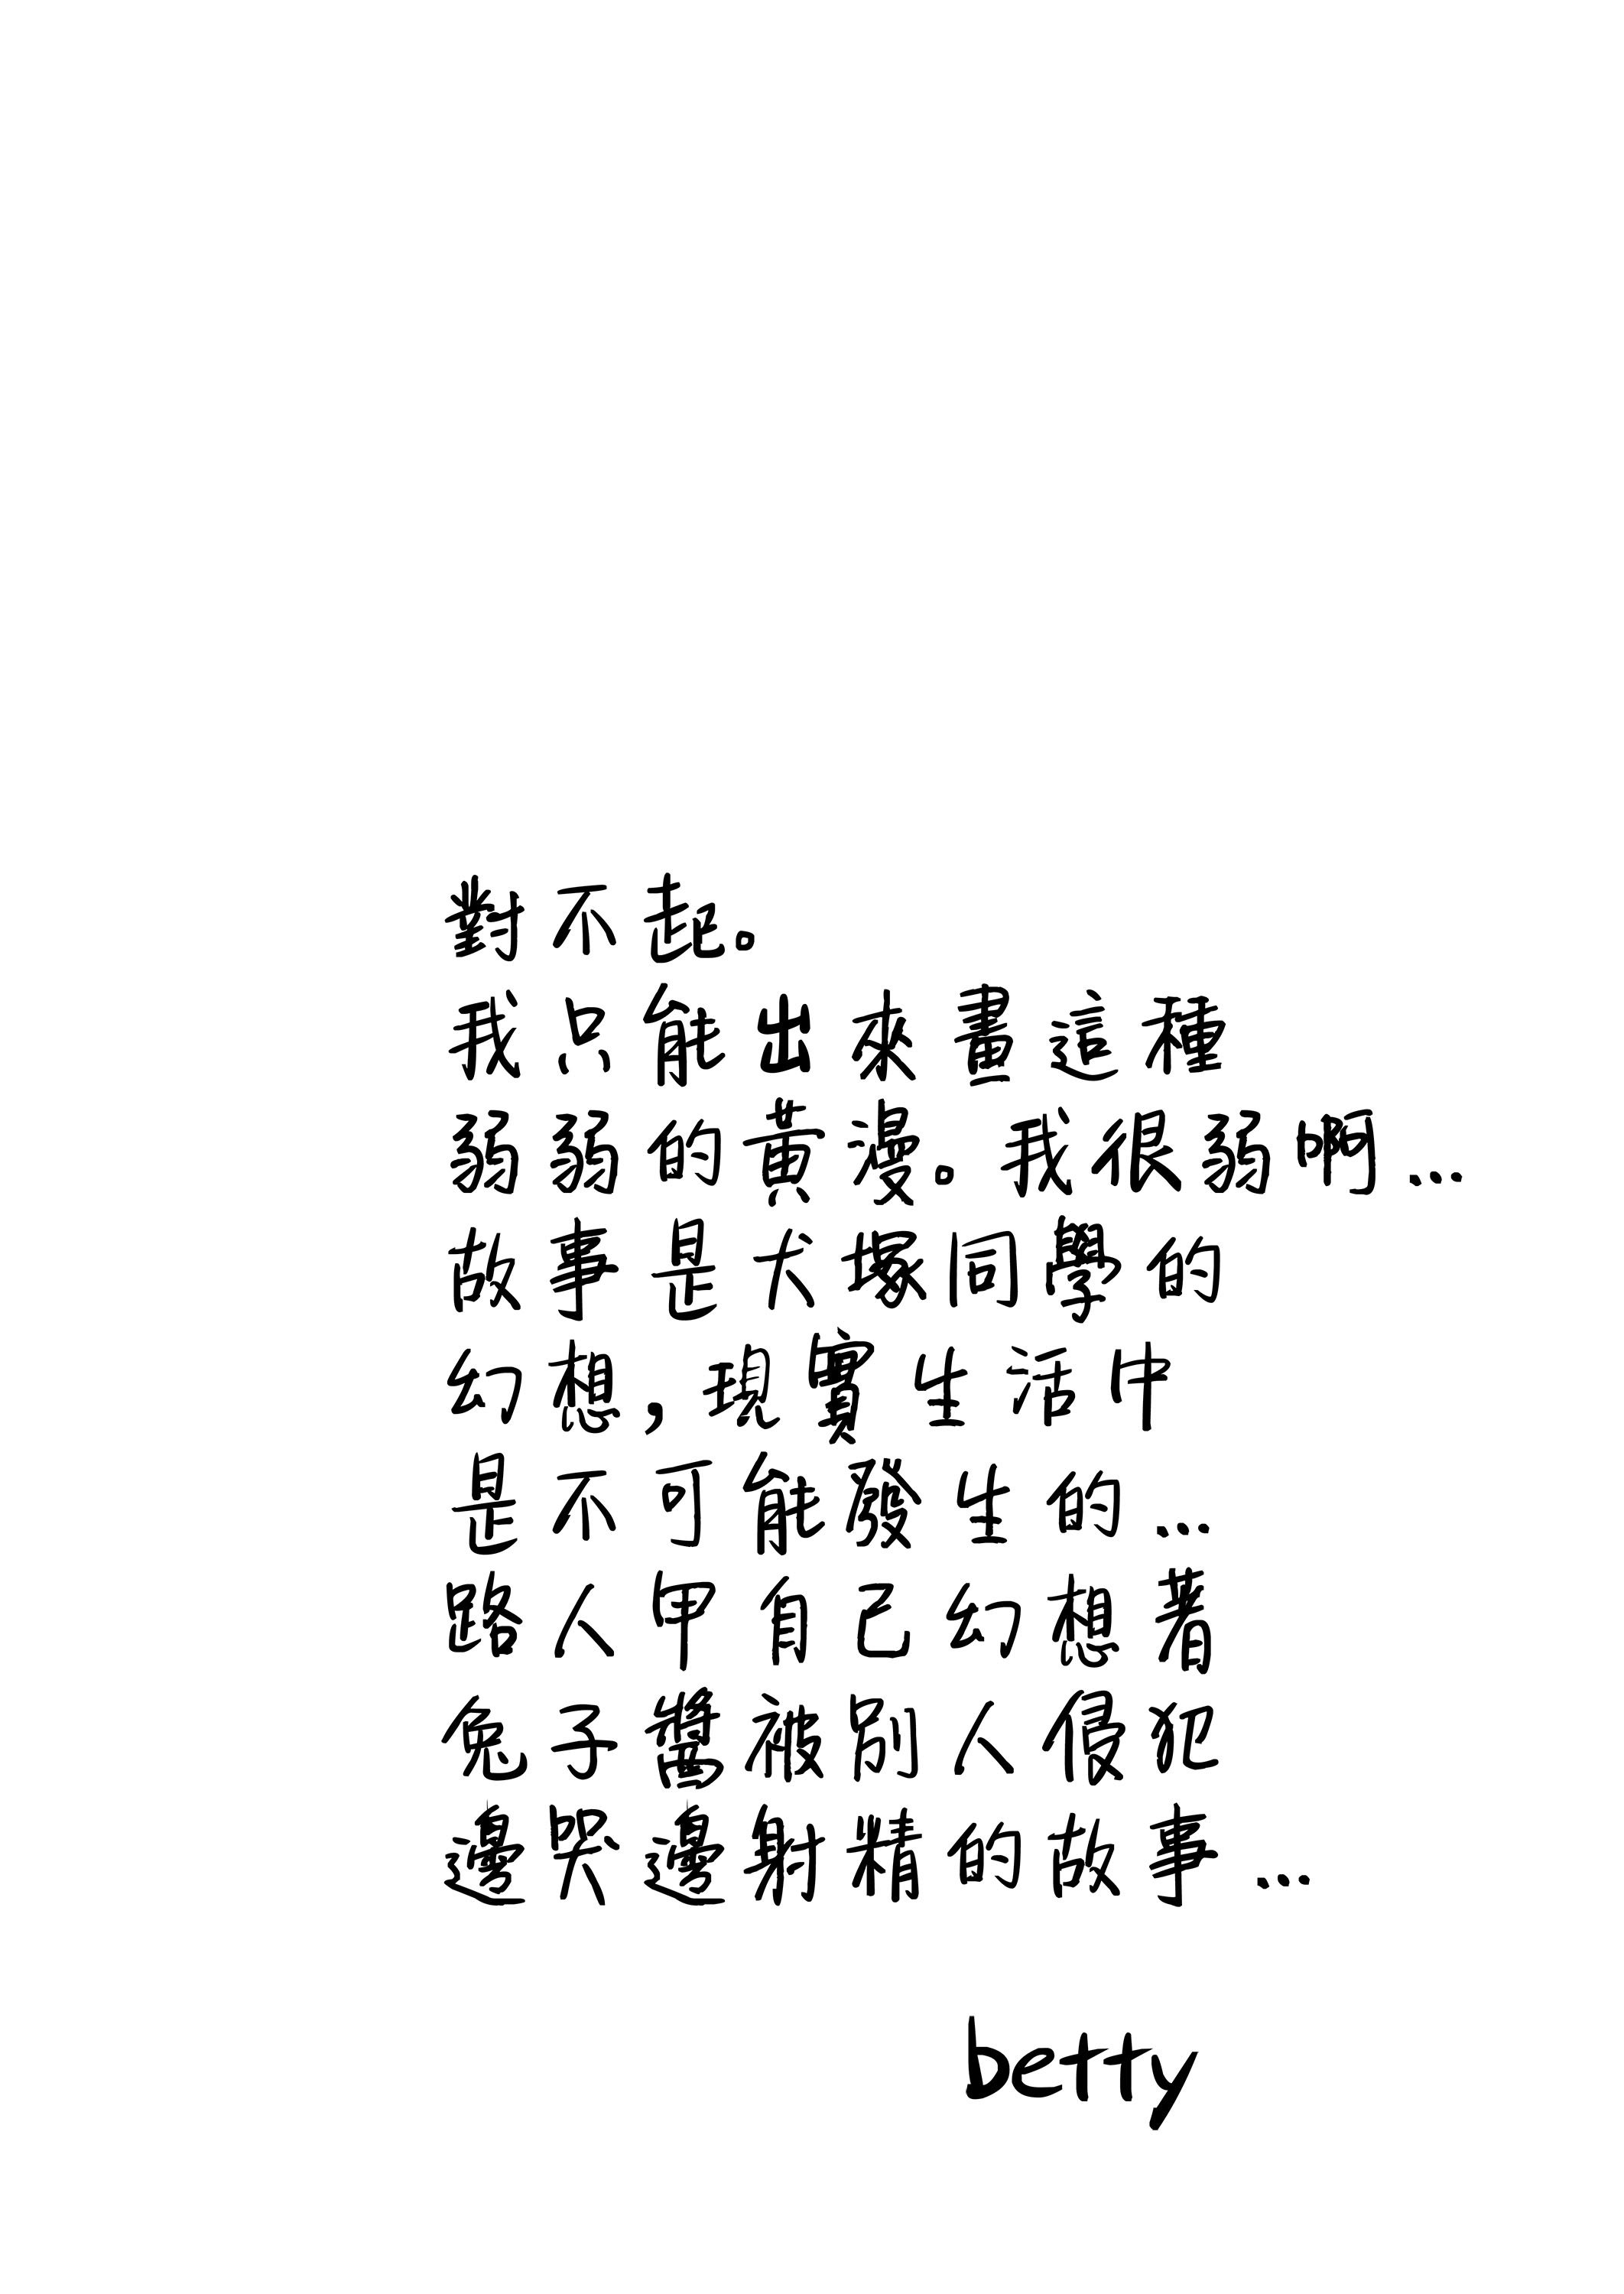 對不起。
我只能出來畫這種
弱弱的黃漫。我很弱啊…
故事是犬塚同學的
幻想,現實生活中
是不可能發生的…
路人甲自己幻想著
兔子醬被別人侵犯
邊哭邊射精的故事…
betty